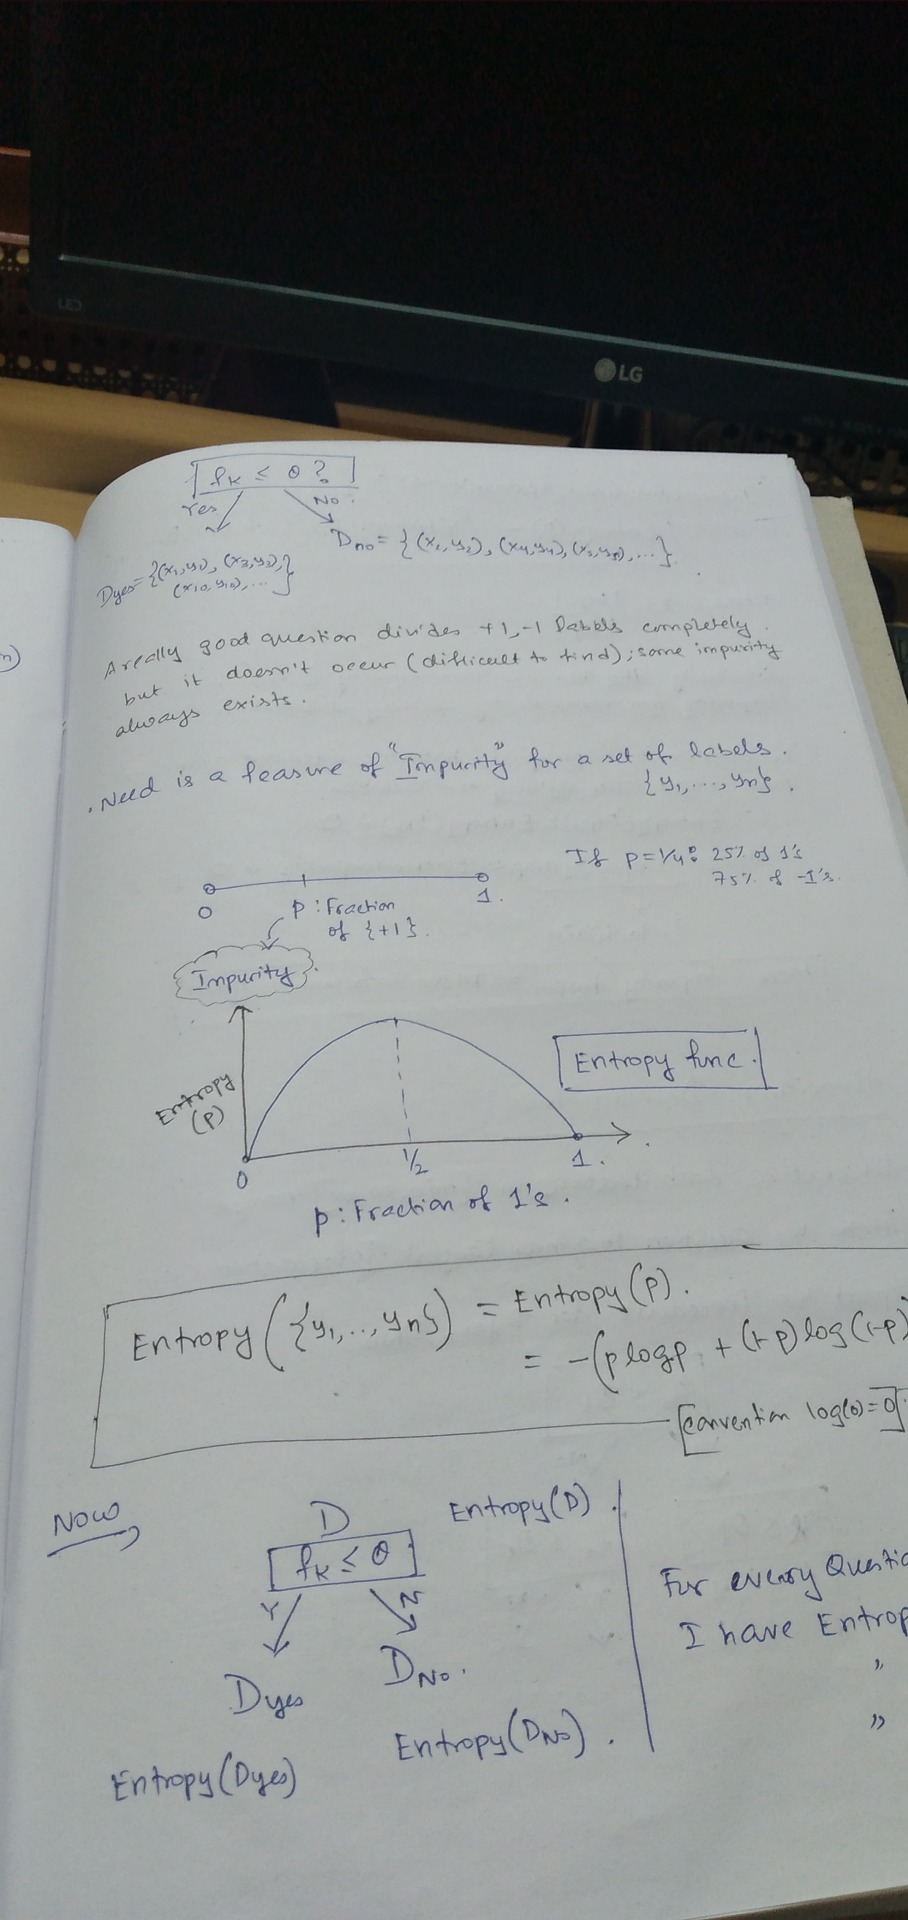 LED
LG
f_K ≤ θ ?
Yes
No
D_no = {(x₂,y₂), (x₄,y₄), (x₅,y₅), ...}
D_yes = {(x₁,y₁), (x₃,y₃),
(x₁₀,y₁₀), ...}
A really good question divides +1, -1 labels completely.
but it doesn't occur (difficult to find); some impurity
always exists.
. Need is a feasure of "Impurity" for a set of labels.
{y₁, ..., yn}.
If p=1/4: 25% of 1's
75% of -1's.
0
p : Fraction
of {+1}.
1.
Impurity.
Entropy
(P)
Entropy func.
0
1/2
1.
p : Fraction of 1's.
Entropy ({y₁, .., yn}) = Entropy(P).
= -(p log p + (1-p) log (1-p)
[Convention log(0)=0].
Now
D
Entropy(D).
f_K ≤ θ
Y
N
D_yes
D_No.
Entropy(D_yes)
Entropy(D_No).
For every Questio
I have Entrop
"
"